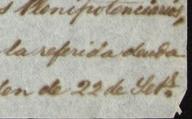 s Plenipotenciarios,
la referida deuda
den de 22 de Set.e